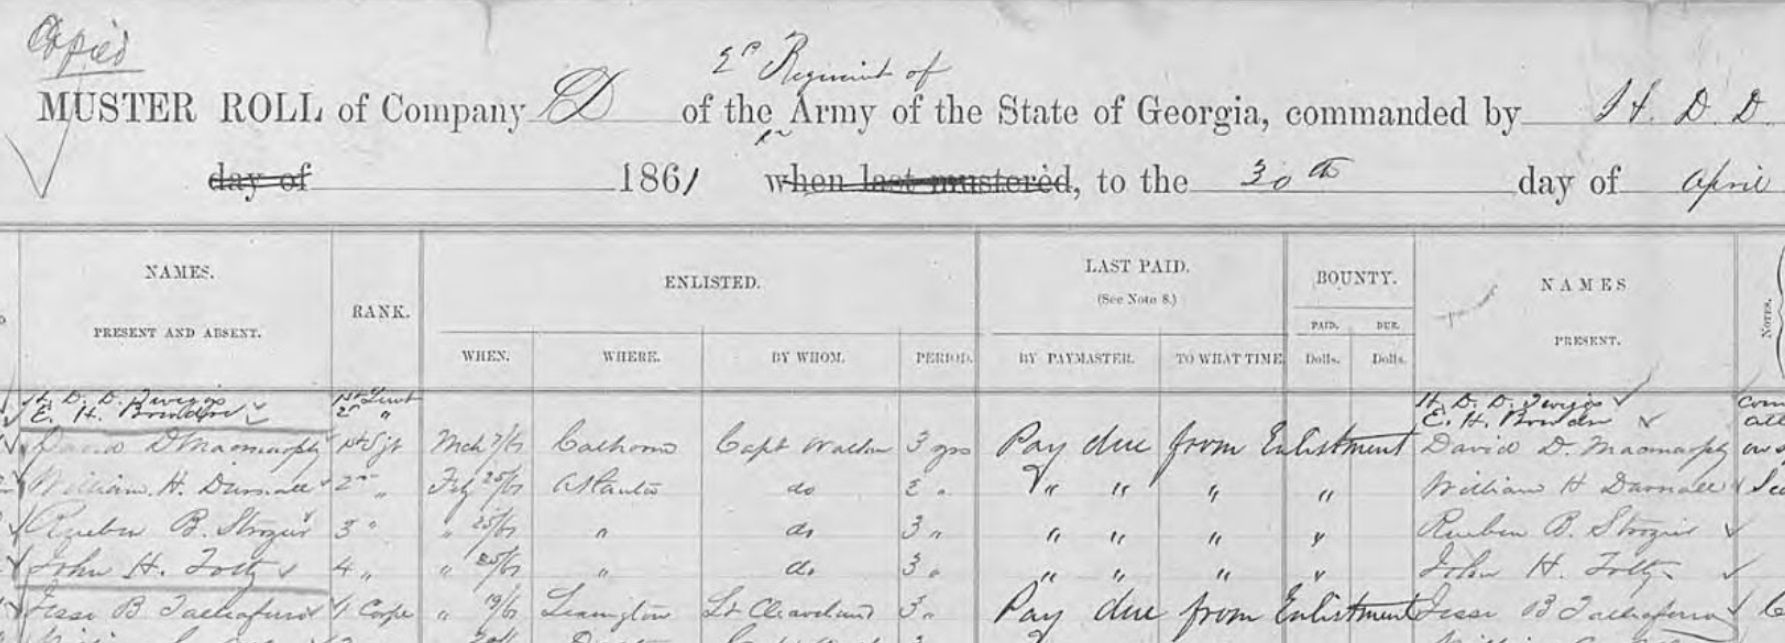 Copied
2d Regiment of
MUSTER ROLL of Company D of the Army of the State of Georgia, commanded by H. D. D.
day of 1861 when last mustered, to the 30th day of April
NAMES. PRESENT AND ABSENT. RANK. ENLISTED. LAST PAID. (See Note 8.) BOUNTY. NAMES PRESENT. NOTES.
WHEN. WHERE. BY WHOM. PERIOD. BY PAYMASTER. TO WHAT TIME. PAID. Dolls. DUE. Dolls.
H. D. D. Twiggs 1st Lieut H. D. D. Twiggs
E. H. Bowden 2d " E. H. Bowden
David D Macmurphy 1st Sgt Mch 7/61 Calhoun Capt Walker 3 yrs Pay due from Enlistment David D. Macmurphy
William H. Darnall 2d " Feby 25/61 Atlanta do " " " " " William H Darnall
Reuben B. Strozier 3 " " 25/61 " do 3 " " " " " Reuben B. Strozier
John H. Foltz 4 " " 25/61 " do 3 " " " " " John H. Foltz
Jesse B Taliaferro 1 Corpl " 19/61 Lexington Lt Cleaveland 3 " Pay due from Enlistment Jesse B Taliaferro